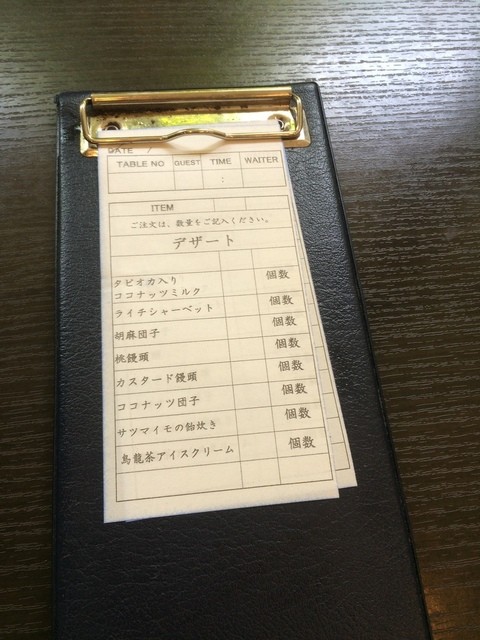 DATE /
TABLE NO GUEST TIME WAITER
:
ITEM
ご注文は、数量をご記入ください。
デザート
タピオカ入り
ココナッツミルク 個数
ライチシャーベット 個数
胡麻団子 個数
桃饅頭 個数
カスタード饅頭 個数
ココナッツ団子 個数
サツマイモの飴炊き 個数
烏龍茶アイスクリーム 個数